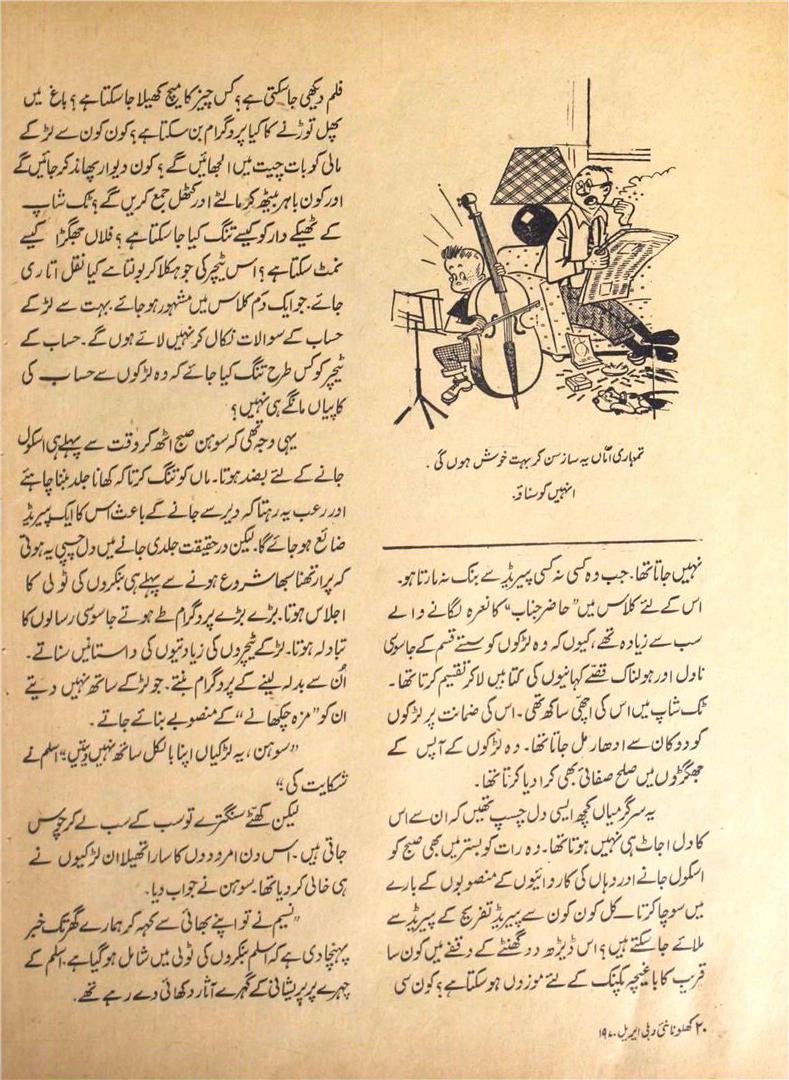 تمہاری امّاں یہ ساز سن کر بہت خوش ہوں گی.
انہیں کو سناؤ.
نہیں جاتا تھا. جب وہ کسی نہ کسی پیریڈ سے بنک نہ مارتا ہو.
اس کے لئے کلاس میں "حاضر جناب" کا نعرہ لگانے والے
سب سے زیادہ تھے، کیوں کہ وہ لڑکوں کو سستے قسم کے جاسوسی
ناول اور ہولناک قصے کہانیوں کی کتابیں لا کر تقسیم کرتا تھا.
ٹک شاپ میں اس کی اچھی ساکھ تھی. اس کی ضمانت پر لڑکوں
کو دوکان سے ادھار مل جاتا تھا. وہ لڑکوں کے آپس کے
جھگڑوں میں صلح صفائی بھی کرا دیا کرتا تھا.
یہ سرگرمیاں کچھ ایسی دل چسپ تھیں کہ ان سے اس
کا دل اچاٹ ہی نہیں ہوتا تھا. وہ رات کو بستر میں بھی صبح کو
اسکول جانے اور وہاں کی کاروائیوں کے منصوبوں کے بارے
میں سوچا کرتا_کل کون کون سے پیریڈ تفریح کے پیریڈ سے
ملائے جا سکتے ہیں؟ اس ڈیڑھ دو گھنٹے کے وقفے میں کون سا
قریب کا باغیچہ پکنک کے لئے موزوں ہو سکتا ہے؟ کون سی
فلم دیکھی جا سکتی ہے؟ کس چیز کا میچ کھیلا جا سکتا ہے؟ باغ میں
پھل توڑنے کا کیا پروگرام بن سکتا ہے؟ کون کون سے لڑکے
مالی کو بات چیت میں الجھائیں گے؟ کون دیوار پھاند کر جائیں گے
اور کون باہر بیٹھ کر مالٹے اور کٹھل جمع کریں گے؟ ٹک شاپ
کے ٹھیکے دار کو کیسے تنگ کیا جا سکتا ہے؟ فلاں جھگڑا کیسے
نمٹ سکتا ہے؟ اس ٹیچر کی جو ہکلا کر بولتا ہے کیا نقل اتاری
جائے. جو ایک دم کلاس میں مشہور ہو جائے. بہت سے لڑکے
حساب کے سوالات نکال کر نہیں لائے ہوں گے. حساب کے
ٹیچر کو کس طرح تنگ کیا جائے کہ وہ لڑکوں سے حساب کی
کاپیاں مانگے ہی نہیں؟
یہی وجہ تھی کہ سوہن صبح اٹھ کر وقت سے پہلے ہی اسکول
جانے کے لئے بضد ہوتا. ماں کو تنگ کرتا کہ کھانا جلد بننا چاہئے
اور رعب یہ رہتا کہ دیر سے جانے کے باعث اس کا ایک پیریڈ
ضائع ہو جائے گا. لیکن درحقیقت جلدی جانے میں دل چسپی یہ ہوتی
کہ پرارتھنا سبھا شروع ہونے سے پہلے ہی بنکروں کی ٹولی کا
اجلاس ہوتا. بڑے بڑے پروگرام طے ہوتے جاسوسی رسالوں کا
تبادلہ ہوتا. لڑکے ٹیچروں کی زیادتیوں کی داستانیں سناتے.
اُن سے بدلہ لینے کے پروگرام بنتے. جو لڑکے ساتھ نہیں دیتے
ان کو "مزہ چکھانے" کے منصوبے بنائے جاتے.
"سوہن، یہ لڑکیاں اپنا بالکل ساتھ نہیں دیتیں" اسلم نے
شکایت کی"
لیکن کھٹے سنگترے تو سب کے سب لے کر چوس
جاتی ہیں. اس دن امرودوں کا سارا تھیلا ان لڑکیوں نے
ہی خالی کر دیا تھا. سوہن نے جواب دیا.
"نسیم نے تو اپنے بھائی سے کہہ کر ہمارے گھر تک خبر
پہنچا دی ہے کہ اسلم بنکروں کی ٹولی میں شامل ہو گیا ہے. اسلم کے
چہرے پر پریشانی کے گہرے آثار دکھائی دے رہے تھے.
۲۰ کھلونا نئی دہلی اپریل ۱۹۷۰